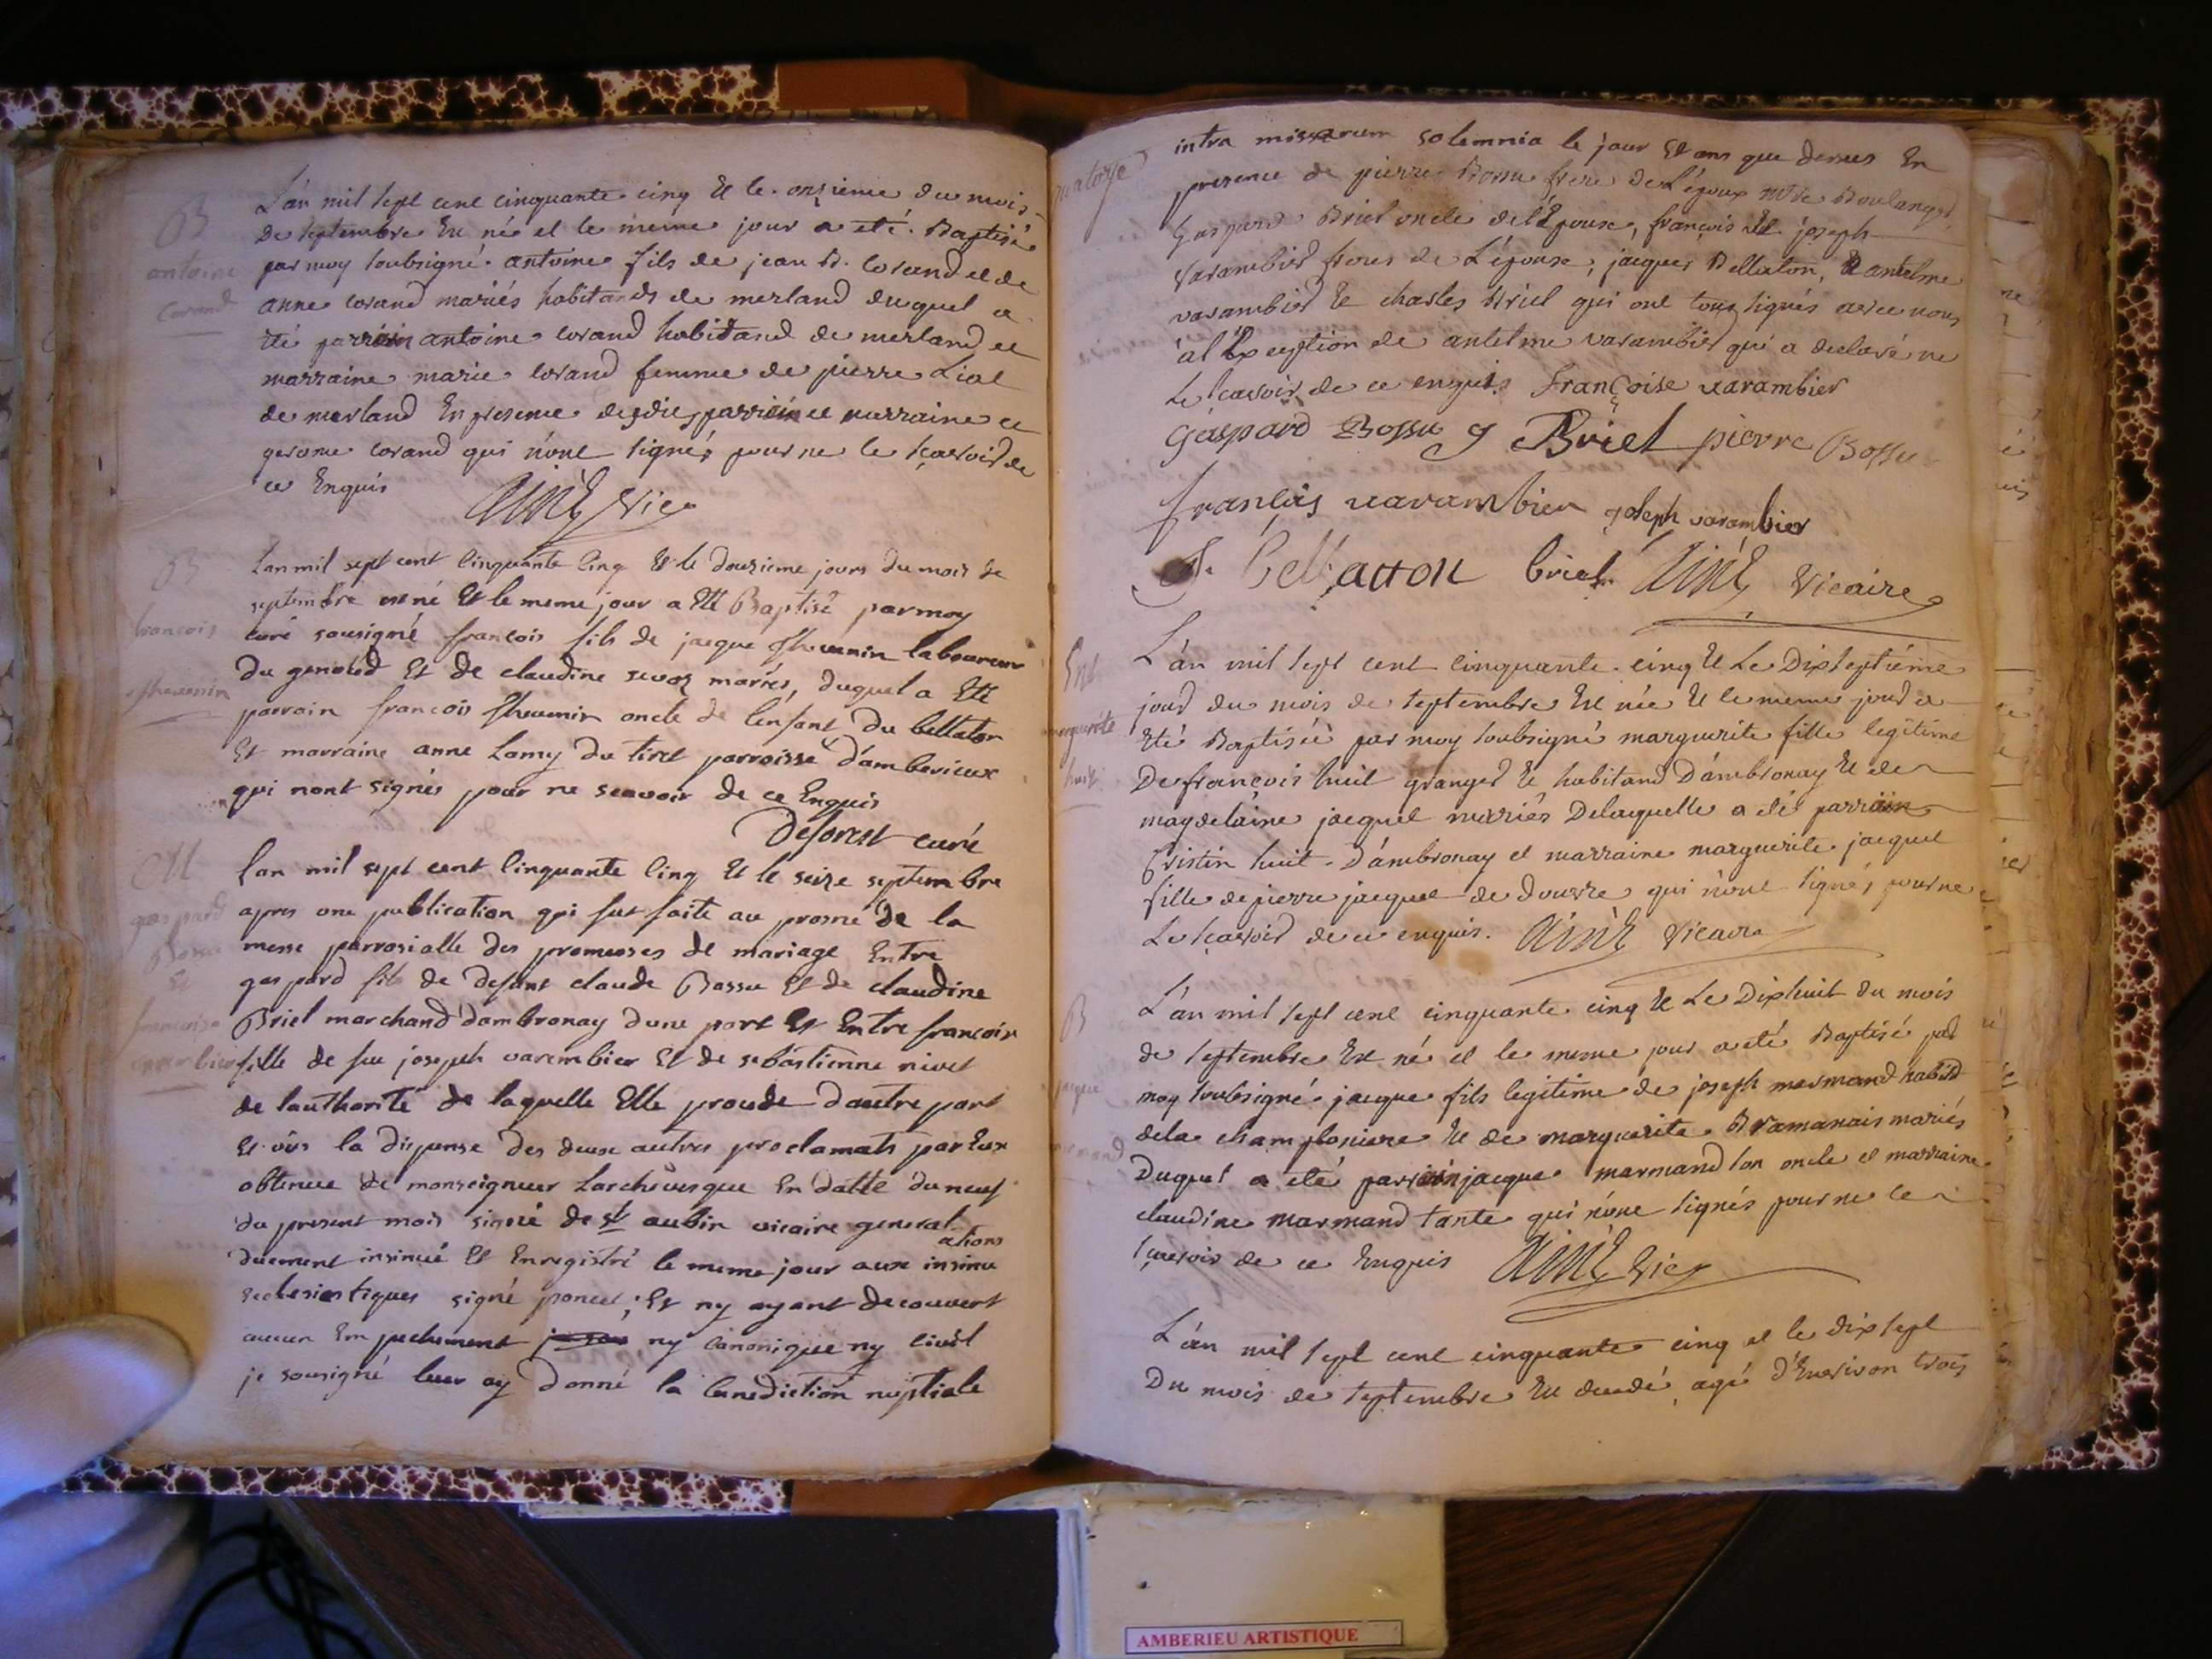 B
antoine
Corand
L'an mil sept cent cinquante cinq et le onzieme du mois
De septembre Est né et le même jour a eté Baptisé
par moy soubsigné antoine fils de jean B. Corand et de
anne Corand mariés habitands de merland duquel a
eté parrain antoine corand habitand de merland et
marraine marie corand femme de pierre Liat
de merland En presence desdits parrain et marraine et
gerome corand qui n'ont signés pour ne le sçavoir de
ce Enquis Aimé Vic.
B
francois
thevenin
Lan mil sept cent Cinquante Cinq Et le Douzieme jours du mois de
septembre est né Et le meme jour a Eté Baptisé par moy
curé sousigné francois fils de jacque thevenin laboureur
Du genoud Et De claudine mariés, duquel a Eté
parrain francois thevenin oncle de l'enfant Du bellaton
Et marraine anne Lamy du tiret parroisse d'amberieux
qui nont signés pour ne scavoir de ce Enquis
Deforest curé
M
gaspard
Bossu
Et
francoise
varambier
Lan mil sept cent Cinquante Cinq Et le seize septembre
apres une publication qui fut faite au prosne de la
messe parrosialle des promesses de mariage Entre
gaspard fils de Defunt claude Bossu Et de claudine
Briel marchand d'ambronay dune part Et Entre francoise
fille de feu joseph varembier Et de sebastienne nivet
de lauthorité de laquelle Elle procede dautre part
Et vûs la dispense des deux autres proclamats par Eux
obtenue de monseigneur Larchevesque En datte du neuf
du present mois signé de st aubin vicaire general
ations
duement insinué Et Enregistré le meme jour aux insinu
Ecclesiastiques signé poncet; Et ny ayant decouvert
aucun Empechement ny canonique ny civil
je sousigné leur ay Donné la benediction nuptiale
quatorze
intra missarum solemnia le jour Et ans que dessus En
presence de pierre Bossu frere de L'époux Boulanger,
Gaspard Briel oncle de l'Epoux, françois Et joseph
varambier freres de L'épouse, jacques Bellaton, Et antelme
varambier Et charles Briel qui ont tous signés avec nous
à l'Exception de antelme varambier qui a declaré ne
Le sçavoir de ce enquis Françoise varambier
Gaspard Bossu g Briel pierre Bossu
françois varambier joseph varambier
J. Bellatton briel Aimé Vicaire
marguerite
huit
L'an mil sept cent cinquante cinq Et Le Dixseptiéme
jour du mois de septembre Est née Et le meme jour a
Eté Baptisée par moy soubsigné marguerite fille legitime
De françois huit granger Et habitand D'ambronay Et de
magdelaine jacquet mariés Delaquelle a eté parrain
Cristin huit D'ambronay et marraine marguerite jacquet
fille de pierre jacquet de Douvre qui n'ont signés pour ne
Le sçavoir de ce enquis. Aimé Vicaire
B
jacque
marmand
L'an mil sept cent cinquante cinq Et Le Dixhuit du mois
de septembre Est né et le meme jour a eté Baptisé par
moy soubsigné jacque fils legitime de joseph marmand habitd
dela champloniere Et de marguerite Bramanais mariés
Duquel a eté parrain jacque marmand son oncle et marraine
claudine marmand tante qui n'ont signés pour ne le
sçavoir de ce Enquis Aimé Vic
L'an mil sept cent cinquante cinq et le dixsept
Du mois de septembre Est decedé, agé d'Environ trois
AMBERIEU ARTISTIQUE